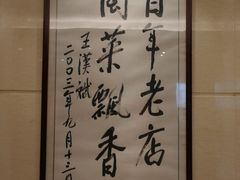 百年老店
闽菜飘香
王漢斌
二〇〇三年九月十三日